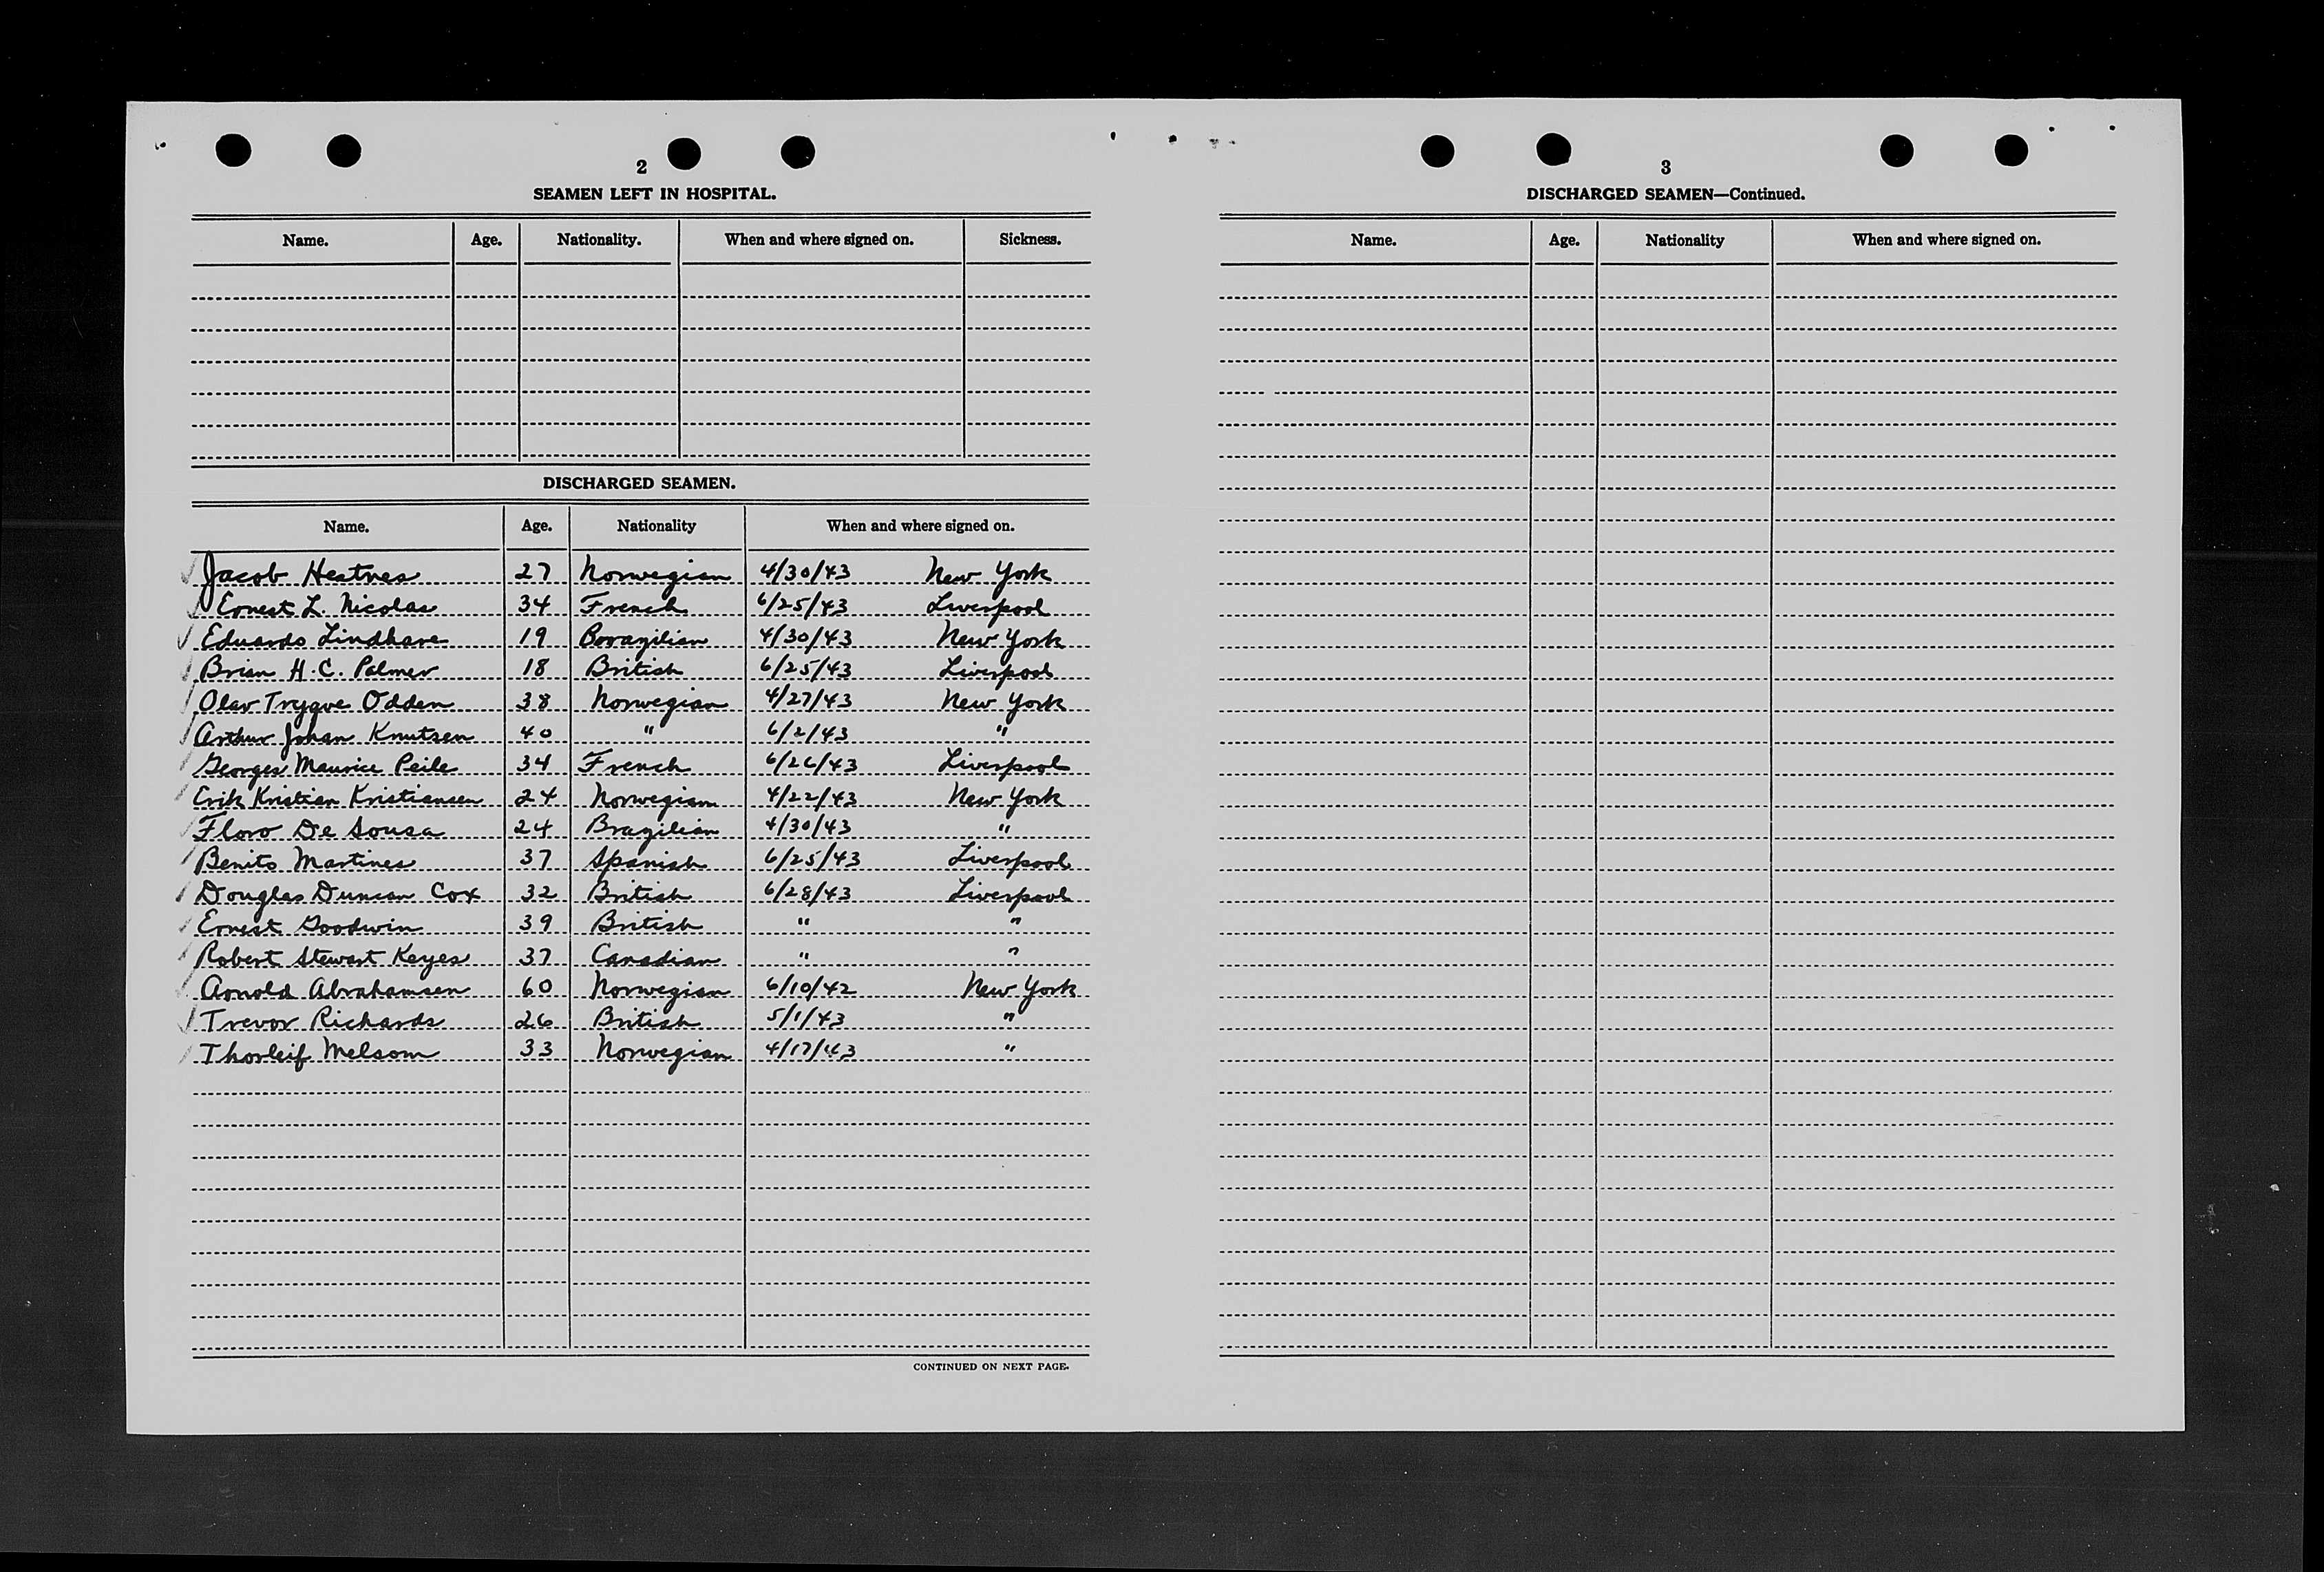 2
SEAMEN LEFT IN HOSPITAL.
Name. Age. Nationality. When and where signed on. Sickness.
DISCHARGED SEAMEN.
Name. Age. Nationality When and where signed on.
Jacob Hestnes 27 Norwegian 4/30/43 New York
Ernest L. Nicolas 34 French 6/25/43 Liverpool
Eduardo 19 Brazilian 4/30/43 New York
Brian H.C. Palmer 18 British 6/25/43 Liverpool
Olav Trygve Odden 38 Norwegian 4/27/43 New York
Arthur Johan Knutsen 40 " 6/2/43 "
Georges Maurice Peile 34 French 6/26/43 Liverpool
Erik Kristian Kristiansen 24 Norwegian 4/22/43 New York
Floro De Sousa 24 Brazilian 4/30/43 "
Benito Martines 37 Spanish 6/25/43 Liverpool
Douglas Duncan Cox 32 British 6/28/43 Liverpool
Ernest Goodwin 39 British " "
Robert Stewart Keyes 37 Canadian " "
Arnold Abrahamsen 60 Norwegian 6/10/42 New York
Trevor Richards 26 British 5/1/43 "
Thorleif Melsom 33 Norwegian 4/17/43 "
CONTINUED ON NEXT PAGE.
3
DISCHARGED SEAMEN—Continued.
Name. Age. Nationality When and where signed on.